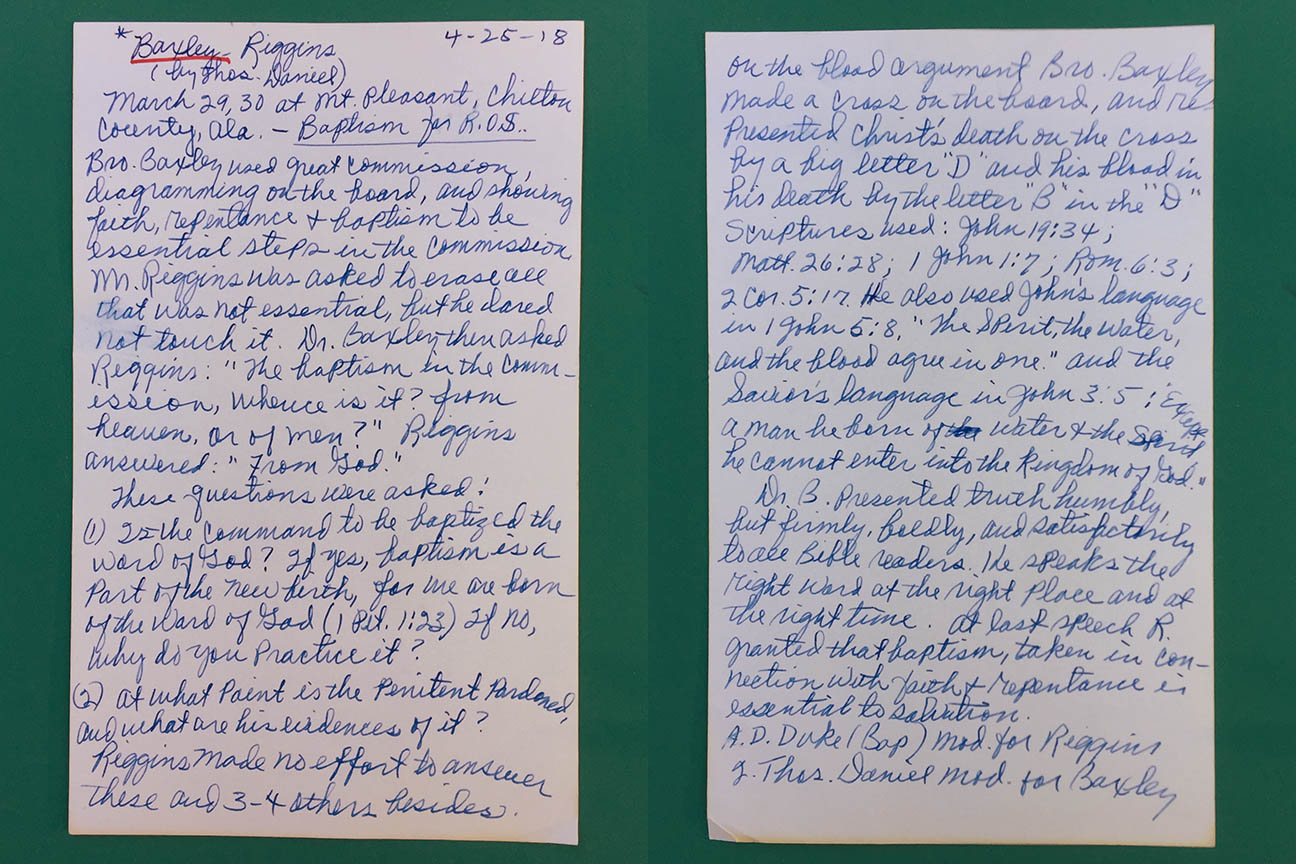 *Baxley - Riggins 4-25-18
(by Thos. Daniel)
March 29, 30 at Mt. Pleasant, Chilton
County, Ala. - Baptism for R.O.S..
Bro. Baxley used great commission,
diagramming on the board, and showing
faith, repentance & baptism to be
essential steps in the commission.
Mr. Riggins was asked to erase all
that was not essential, but he dared
not touch it. Dr. Baxley then asked
Riggins: "The baptism in the comm-
ission, whence is it? from
heaven, or of men?" Riggins
answered: "From God."
These questions were asked:
(1) Is the command to be baptized the
word of God? If yes, baptism is a
part of the new birth, for we are born
of the word of God (1 Pet. 1:23) If no,
why do you practice it?
(2) at what point is the penitent pardoned,
and what are his evidences of it?
Riggins made no effort to answer
these and 3-4 others besides.
on the blood argument Bro. Baxley
made a cross on the board, and re
presented Christ's death on the cross
by a big letter "D" and his blood in
his death by the letter "B" in the "D"
Scriptures used: John 19:34;
Matt. 26:28; 1 John 1:7; Rom. 6:3;
2 Cor. 5:17. He also used John's language
in 1 John 5:8, "The Spirit, the water,
and the blood agree in one." and the
Savior's language in John 3:5: "Except
a man be born of water & the Spirit
he cannot enter into the kingdom of God."
Dr. B. presented truth humbly,
but firmly, boldly, and satisfactorily
to all Bible readers. He speaks the
right word at the right place and at
the right time. at last speech R.
granted that baptism, taken in con-
nection with faith & repentance is
essential to salvation.
A. D. Duke (Bap) Mod. for Riggins
J. Thos. Daniel Mod. for Baxley